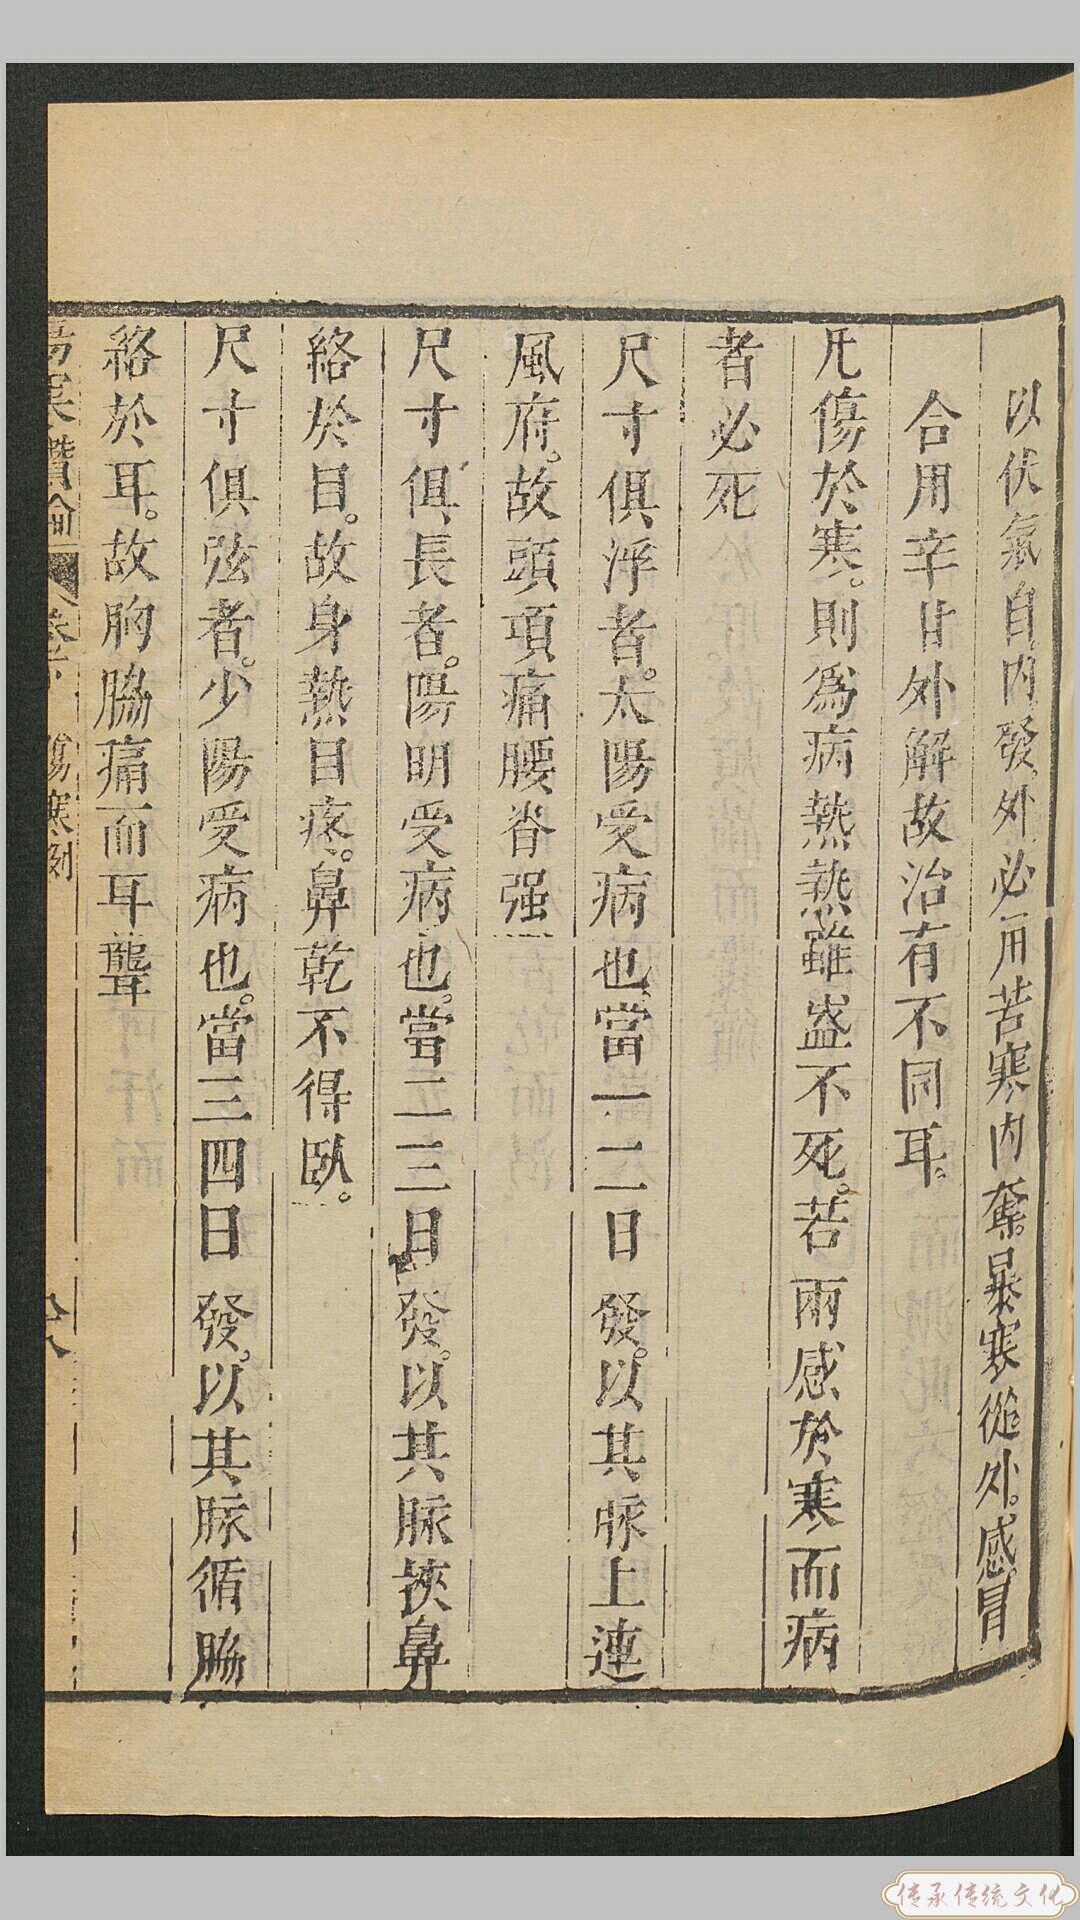 以伏氣自內發。外必用苦寒內奪。暴寒從外。感冒
合用辛甘外解故治有不同耳。
凡傷於寒。則爲病熱熱雖盛不死。若兩感於寒而病
者必死
尺寸俱浮者。太陽受病也。當一二日發。以其脉上連
風府。故頭項痛腰脊强
尺寸俱長者。陽明受病也。當二三日發。以其脉挾鼻
絡於目。故身熱目疼。鼻乾不得臥。
尺寸俱弦者。少陽受病也。當三四日發。以其脉循脇
絡於耳。故胸脇痛而耳聾
傷寒 論 卷 傷寒例 八
传承传统文化